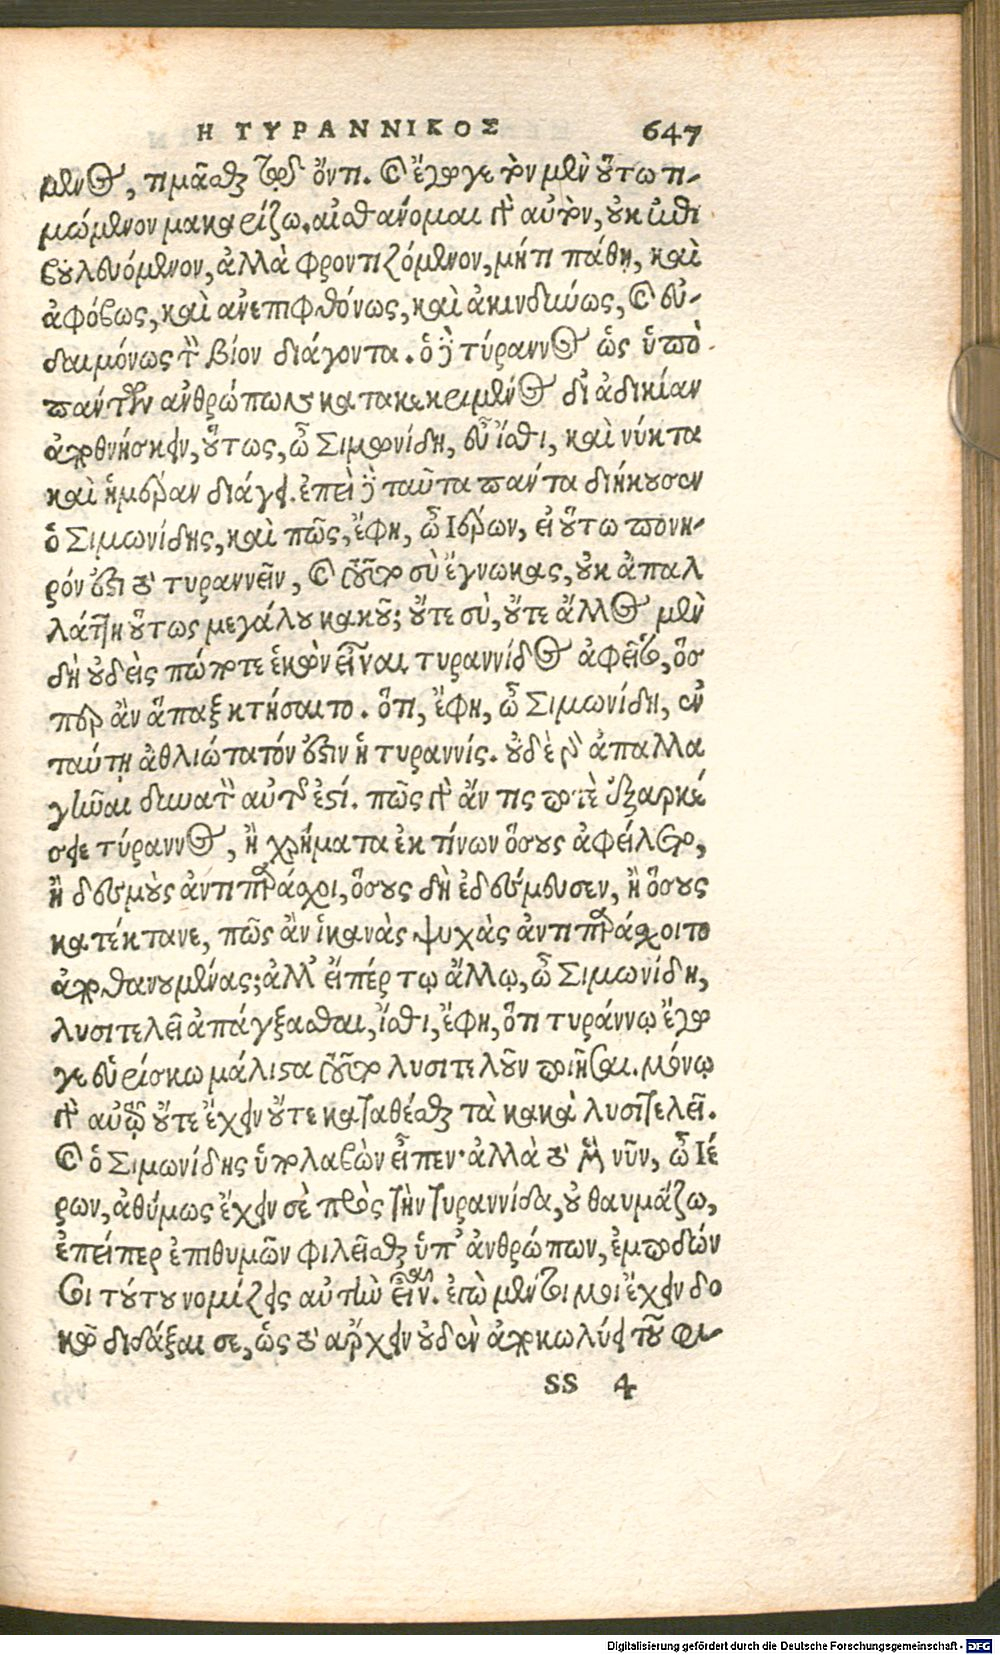 Η ΤΥΡΑΝΝΙΚΟΣ 647
μενος, τιμᾶσθαι τῷ ὄντι. καὶ ἔγωγε τὸν μὲν οὕτω τι-
μώμενον μακαρίζω. αἰσθάνομαι γὰρ αὐτὸν, οὐκ ἐπι
βουλευόμενον, ἀλλὰ φροντιζόμενον, μήτι πάθῃ, καὶ
ἀφόβως, καὶ ἀνεπιφθόνως, καὶ ἀκινδύνως, καὶ εὐ-
δαιμόνως τὸν βίον διάγοντα. ὁ δὲ τύραννος ὡς ὑπὸ
πάντων ἀνθρώπων κατακεκριμένος δι' ἀδικίαν
ἀποθνήσκειν, οὕτως, ὦ Σιμωνίδη, εὖ ἴσθι, καὶ νύκτα
καὶ ἡμέραν διάγει. ἐπεὶ δὲ ταῦτα πάντα διήκουσεν
ὁ Σιμωνίδης, καὶ πῶς, ἔφη, ὦ Ἱέρων, εἰ οὕτω πονη-
ρόν ἐστι τὸ τυραννεῖν, καὶ τοῦτο σὺ ἔγνωκας, οὐκ ἀπαλ
λάττῃ οὕτως μεγάλου κακοῦ; οὔτε σὺ, οὔτε ἄλλος μὲν
δὴ οὐδεὶς πώποτε ἑκὼν εἶναι τυραννίδος ἀφεῖτο, ὅσ
περ ἂν ἅπαξ κτήσαιτο. ὅτι, ἔφη, ὦ Σιμωνίδη, ἐν
ταύτῃ ἀθλιώτατόν ἐστιν ἡ τυραννίς. οὐδὲ γὰρ ἀπαλλα
γῆναι δυνατὸν αὐτῆς ἐστί. πῶς γὰρ ἄν τις ποτὲ ἐξαρκέ
σειε τύραννος, ἢ χρήματα ἐκτίνων ὅσους ἀφείλετο,
ἢ δεσμοὺς ἀντιπάσχοι, ὅσους δὴ ἐδέσμευσεν, ἢ ὅσους
κατέκτανε, πῶς ἂν ἱκανὰς ψυχὰς ἀντιπαράσχοιτο
ἀποθανουμένας; ἀλλ' εἴπέρ τῳ ἄλλῳ, ὦ Σιμωνίδη,
λυσιτελεῖ ἀπάγξασθαι, ἴσθι, ἔφη, ὅτι τυράννῳ ἔγω
γε εὑρίσκω μάλιστα τοῦτο λυσιτελοῦν ποιῆσαι. μόνῳ
γὰρ αὐτῷ οὔτε ἔχειν οὔτε καταθέσθαι τὰ κακὰ λυσιτελεῖ.
καὶ ὁ Σιμωνίδης ὑπολαβὼν εἶπεν· ἀλλὰ τὸ μὲν νῦν, ὦ Ἱέ
ρων, ἀθύμως ἔχειν σὲ πρὸς τὴν τυραννίδα, οὐ θαυμάζω,
ἐπείπερ ἐπιθυμῶν φιλεῖσθαι ὑπ' ἀνθρώπων, ἐμποδών
σοι τούτου νομίζεις αὐτὴν εἶναι. ἐγὼ μέντοι μοι ἔχειν δο
κῶ διδάξαι σε, ὡς τὸ ἄρχειν οὐδὲν ἀποκωλύει τοῦ φι-
SS 4
Digitalisierung gefördert durch die Deutsche Forschungsgemeinschaft - DFG